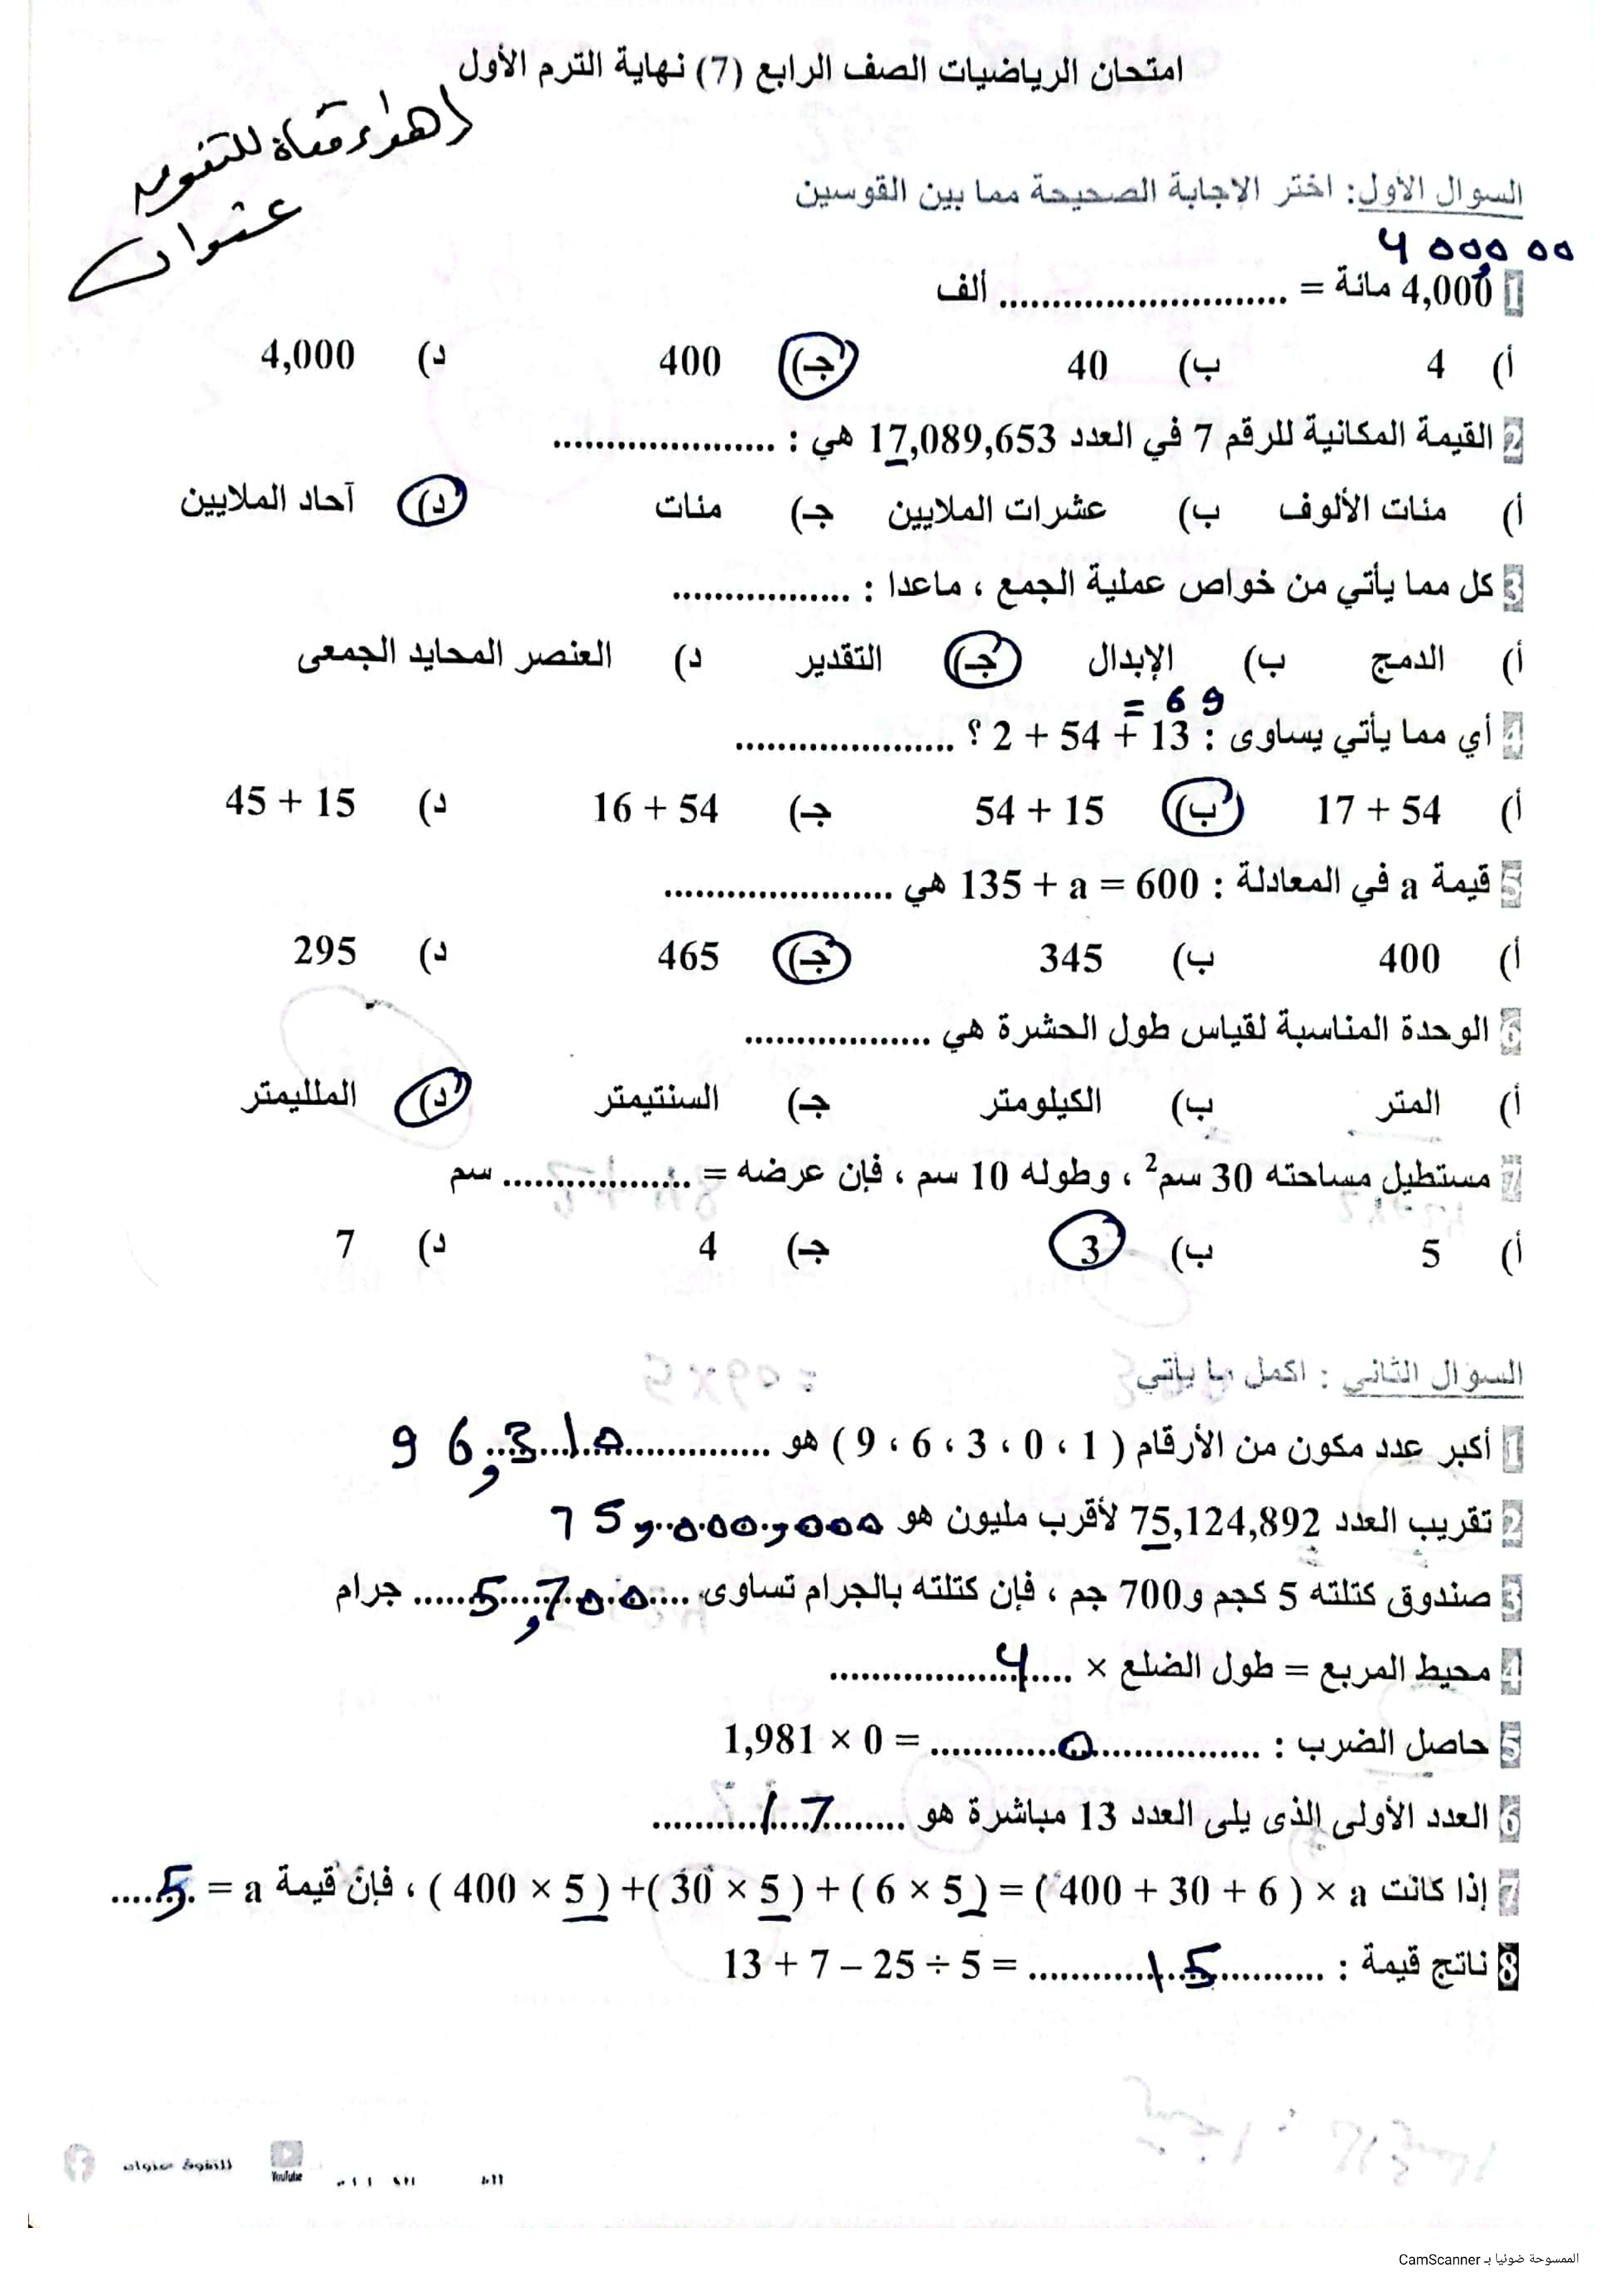 امتحان الرياضيات الصف الرابع (7) نهاية الترم الأول
اهداء قناة للتفوق
عنوان
السوال الأول: اختر الإجابة الصحيحة مما بين القوسين
4 000,00
1 4,000 مائة = ........................... ألف
أ) 4 ب) 40 جـ) 400 د) 4,000
2 القيمة المكانية للرقم 7 في العدد 17,089,653 هي : .....................
أ) مئات الألوف ب) عشرات الملايين جـ) مئات د) آحاد الملايين
3 كل مما يأتي من خواص عملية الجمع ، ماعدا : .................
أ) الدمج ب) الإبدال جـ) التقدير د) العنصر المحايد الجمعى
= 69
4 أي مما يأتي يساوى : 2 + 54 + 13 ؟ .....................
أ) 17 + 54 ب) 54 + 15 جـ) 16 + 54 د) 45 + 15
5 قيمة a في المعادلة : 135 + a = 600 هي ......................
أ) 400 ب) 345 جـ) 465 د) 295
6 الوحدة المناسبة لقياس طول الحشرة هي ..................
أ) المتر ب) الكيلومتر جـ) السنتيمتر د) الملليمتر
7 مستطيل مساحته 30 سم² ، وطوله 10 سم ، فإن عرضه = .................. سم
أ) 5 ب) 3 جـ) 4 د) 7
السوال الثاني : اكمل ما يأتي
1 أكبر عدد مكون من الأرقام ( 1 ، 0 ، 3 ، 6 ، 9 ) هو 96,310
2 تقريب العدد 75,124,892 لأقرب مليون هو 75,000,000
3 صندوق كتلته 5 كجم و700 جم ، فإن كتلته بالجرام تساوى 5,700 جرام
4 محيط المربع = طول الضلع × 4
5 حاصل الضرب : 1,981 × 0 = 0
6 العدد الأولى الذى يلى العدد 13 مباشرة هو 17
7 إذا كانت ( 400 × 5 ) +( 30 × 5 ) + ( 6 × 5 ) = ( 400 + 30 + 6 ) × a ، فإن قيمة a = 5
8 ناتج قيمة : 13 + 7 – 25 ÷ 5 = 15
YouTube
للتفوق عنوان
الممسوحة ضوئيا بـ CamScanner